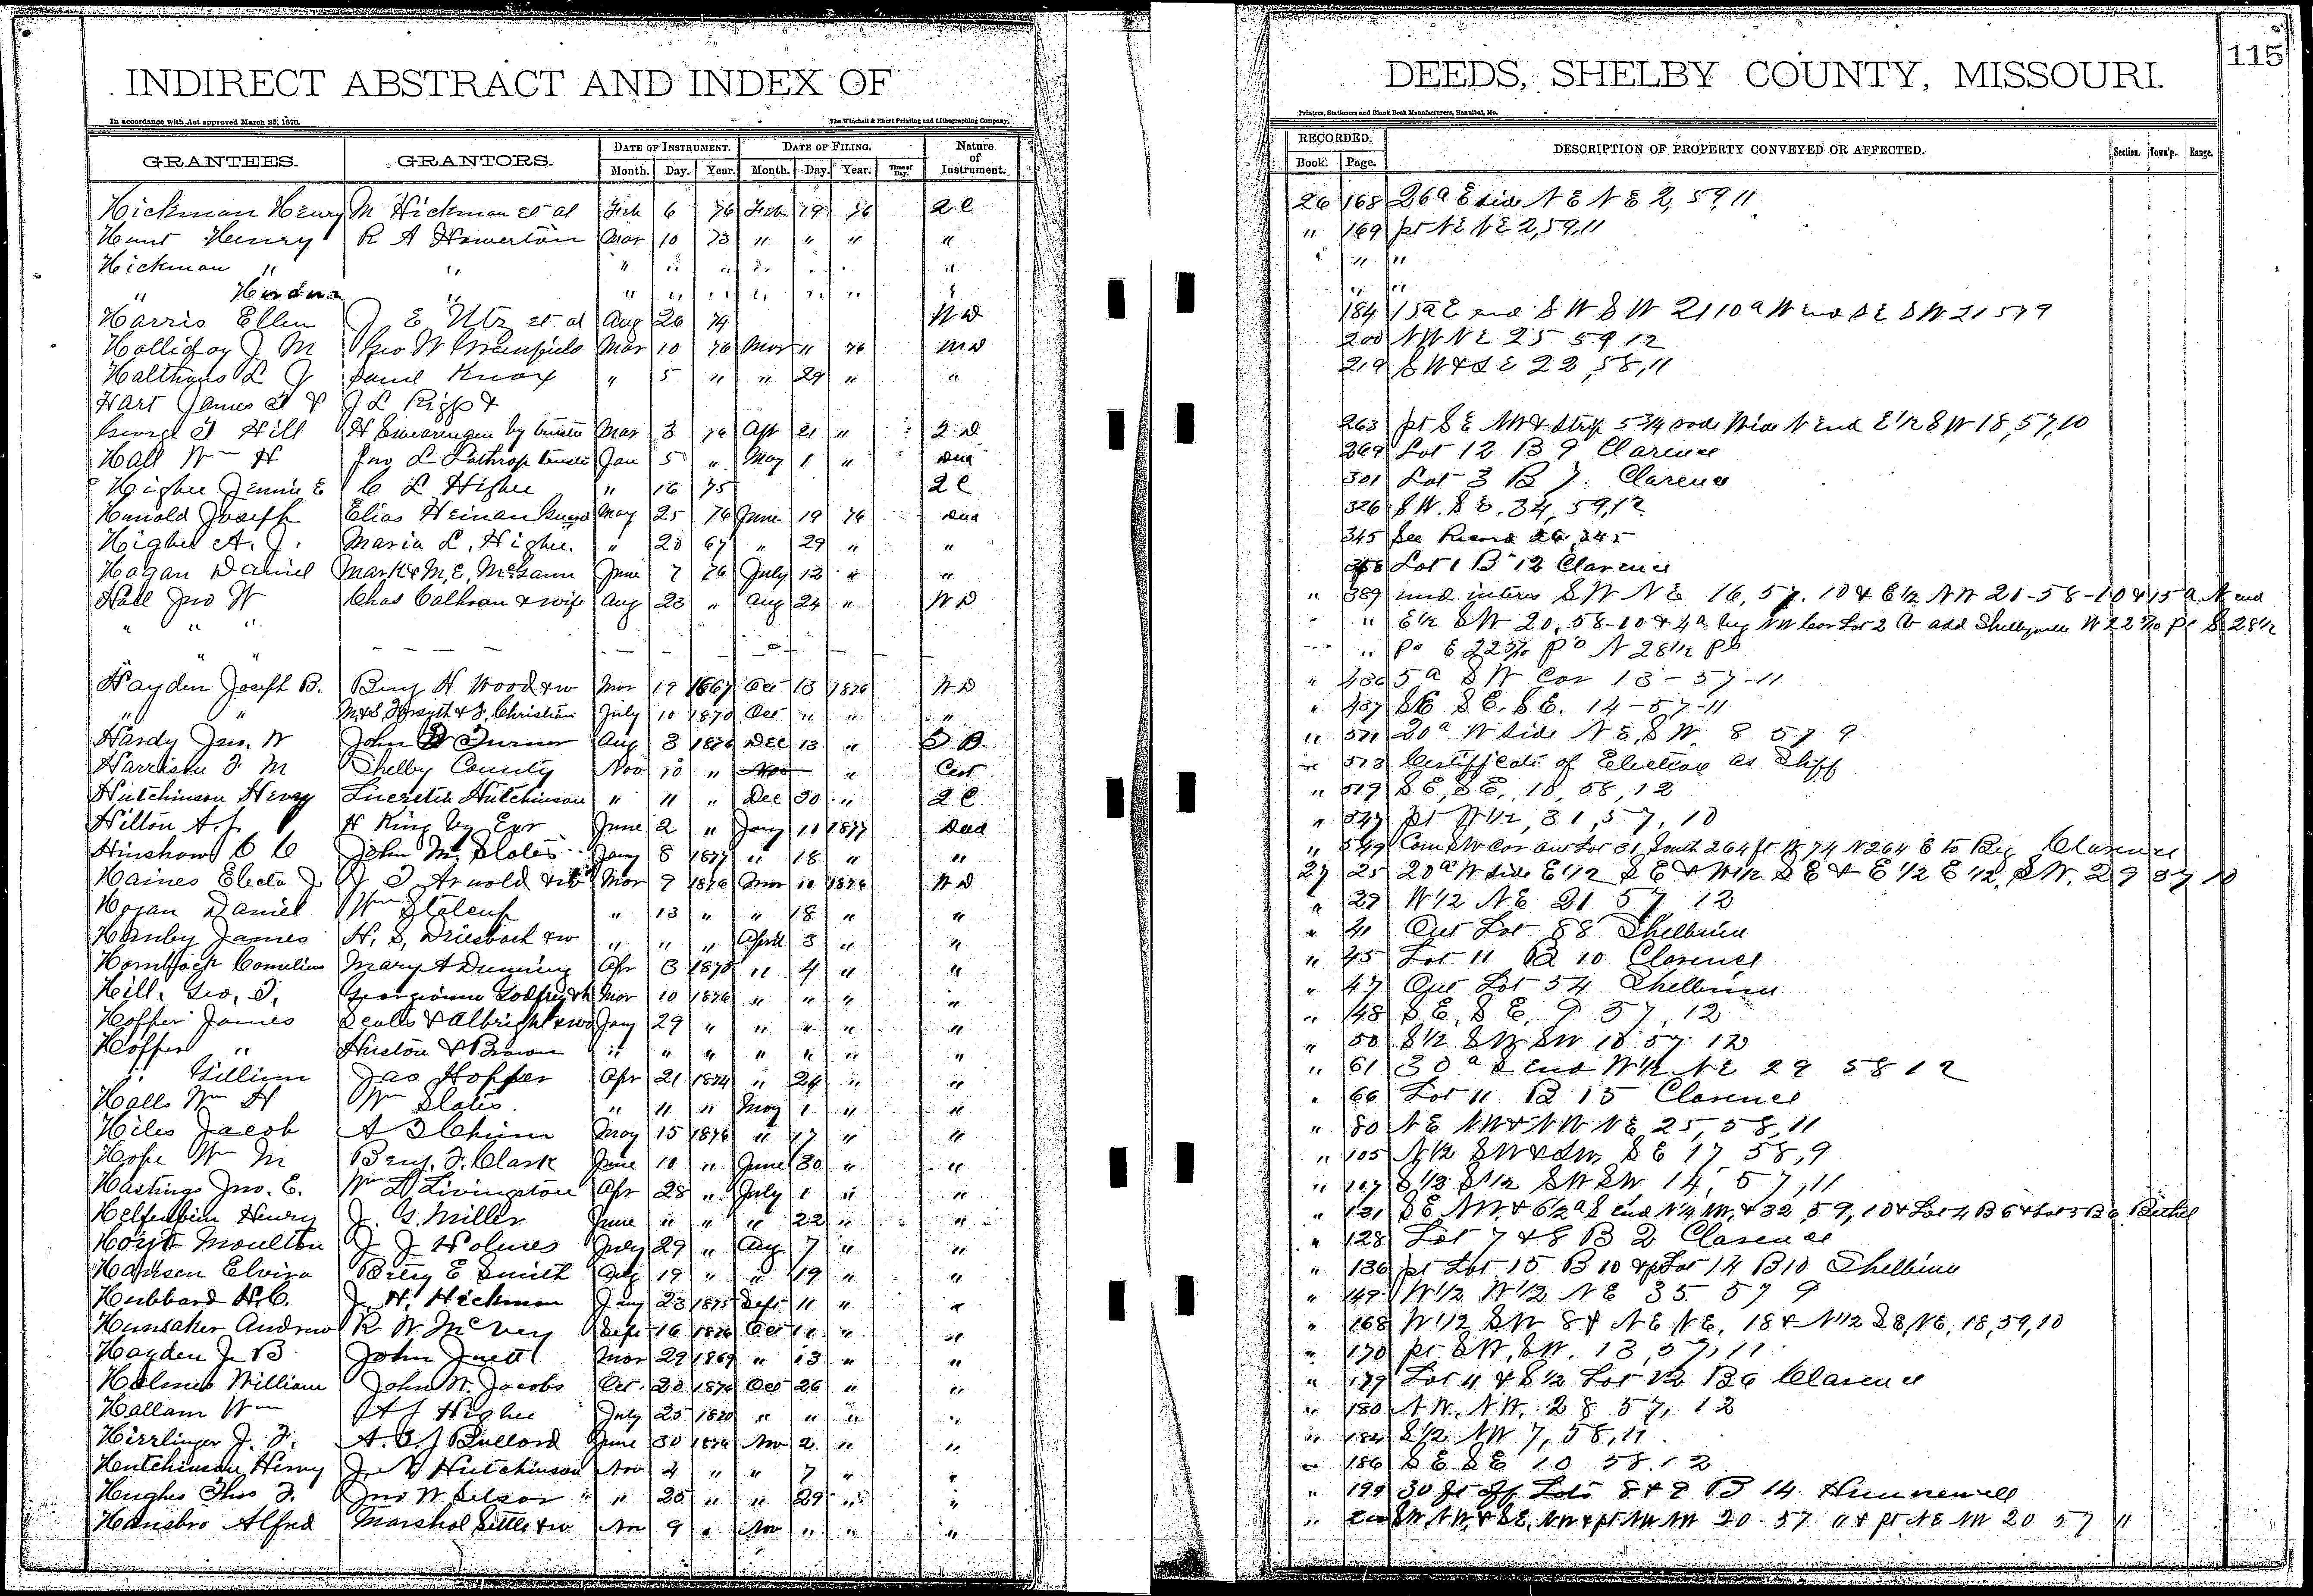 INDIRECT ABSTRACT AND INDEX OF
In accordance with Act approved March 25, 1870.
The Winchell & Ebert Printing and Lithographing Company,
GRANTEES. GRANTORS. DATE OF INSTRUMENT. DATE OF FILING. Nature of Instrument.
Month. Day. Year. Month. Day. Year. Time of Day.
Hickman Henry M Hickman et al Feb 6 76 Feb 19 76 Q C
Hunt Henry R A Howerton Mar 10 73 " " " "
Hickman " " " " " " " " "
" " " " " " " " "
Harris Ellen J E Utz et al Aug 26 74 W D
Holliday J M Geo W Greenfield Mar 10 76 Mar 11 76 W D
L J Saml Knox " 5 " " 29 " "
Hart James T & J L Rigg &
George T Hill H Swearingen by trustee Mar 3 76 Apr 21 " 2 D
Hall Wm H Jno L Lathrop trustee Jan 5 " May 1 " Deed
Higbee Jennie E C L Higbee " 16 75 Q C
Hunold Joseph Elias Heinan May 25 76 June 19 76 Deed
Higbee A. J. Maria L. Higbee. " 20 67 " 29 " "
Hagan Daniel Mark & M, E, McGann June 7 76 July 12 " "
Hall Jno W Chas Calhoun & wife Aug 23 " Aug 24 " W D
" " "
" "
Hayden Joseph B. Benj H Wood & w Mar 19 1867 Oct 13 1876 W D
" " M. & S, Forsyth & J, Christian July 10 1870 Oct " " "
Hardy Jas. W John W Turner Aug 3 1876 Dec 13 "
Harrison F M Shelby County Nov 10 " Nov " Cert
Hutchinson Henry Lucretia Hutchinson " 11 " Dec 30 " Q C
Hilton A. J. H King by Exr June 2 " Jany 10 1877 Deed
Hinshaw C C John M. Slates Jany 8 1877 " 18 " "
Haines Electa J. J T Arnold & w Mar 9 1876 Mar 10 1876 W D
Hogan Daniel Wm Stalcup " 13 " " 18 " "
Hanby James H. S, Driesbach & w " " " April 3 " "
Cornelius Mary A Dunning Apr 3 1875 " 4 " "
Hill, Geo, T, Georgianna Godfrey & h Mar 10 1876 " " " "
Hopper James Scates & Albright & wo Jany 29 " " " " "
Hopper " Huston & Brown " " " " " " "
" Gilliam Jas Hopper Apr 21 1874 " 24 " "
Halls Wm H Wm Slates " 11 " May 1 " "
Hiles Jacob May 15 1876 " 17 " "
Hope Wm M Benj. F. Clark June 10 " June 30 " "
Hastings Jno. E. Wm L Livingston Apr 28 " July 1 " "
Helfenbein Henry J. G. Miller June " " " 22 " "
Hoyt Moulton J J Holmes July 29 " Aug 7 " "
Elvira Betsy E Smith Aug 19 " " 19 " "
Hubbard H. C. J. H. Hickman Jany 23 1875 Sept 11 " "
Hunsaker Andrew R W McVey Sept 16 1876 Oct "
Hayden J. B John Jnett Mar 29 1869 " 13 " "
Holmes William John W. Jacobs Oct. 20 1876 Oct 26 " "
Hallam Wm A J Higbee July 25 1870 " " " "
Hirrlinger J. F. A. C. J Bullord June 30 1876 Nov 2 " "
Hutchinson Henry J. N Hutchinson Nov 4 " " 7 " "
Hughes Thos F. Jno W Selsor " 25 " " 29 " "
Hansbro Alfred Marshal Settle & w Nov 9 " Nov " " "
115
DEEDS, SHELBY COUNTY, MISSOURI.
Printers, Stationers and Blank Book Manufacturers, Hannibal, Mo.
RECORDED. DESCRIPTION OF PROPERTY CONVEYED OR AFFECTED. Section. Town'p. Range.
Book. Page.
26 168 26 a E side N E N E 2, 59, 11
" 169 pt N E N E 2, 59, 11
" " "
" "
184 15a E end S W S W 21 10 a W end S E S W 21 57 9
200 N W N E 25 59 12
219 S W & S E 22, 58, 11
263 pt S E N W & strip 5 3/4 rods wide N end E 1/2 S W 18, 57, 10
269 Lot 12 B 9 Clarence
301 Lot 3 B 7. Clarence
326 S W. S E. 34, 59, 12
345 See Record 26, 345
358 Lot 1 B 12 Clarence
" 389 und interes S W N E 16, 57. 10 & E 1/2 N W 21-58-10 & 15 a. N end
" " E 1/2 S W 20, 58-10 & 4 a beg N W Cor Lot 2 add Shelbyville W 22 po S 28 1/2
" po E 22 po N 28 1/2 po
" 436 5 a S W Cor 13-57-11
" 437 S E. S E. 14-57-11
" 511 20 a W side N E, S W. 8 57 9
" 513 Certificate of Election as Shff
" 519 S E, S E, 10, 58, 12
" 547 pt W 1/2, 31, 57, 10
" 549 Com S W Cor out Lot 31 South 264 ft W 74 N 264 E to Beg Clarence
27 25 20 a W side E 1/2 S E & W 1/2 S E & E 1/2 E 1/2, S W. 29 57 10
" 29 W 1/2 N E 21 57 12
" 41 Out Lot 88 Shelbina
" 45 Lot 11 B 10 Clarence
" 47 Out Lot 54 Shelbina
" 48 S E, S E, 9 57, 12
" 50 S 1/2 S W S W 10 57 12
" 61 30 a S end W 1/2 N E 29 58 12
" 66 Lot 11 B 15 Clarence
" 80 N E N W & N W N E 25, 58, 11
" 105 N 1/2 S W & S W, S E 17 58, 9
" 107 S 1/2 S 1/2 S W S W 14, 57, 11
" 121 S E N W. & 6 1/2 a S end N 1/4 32 59, 10 & Lot 4 B 6 & Lot 5 B 6 Bethel
" 128 Lot 7 & 8 B 2 Clarence
" 136 pt Lot 15 B 10 & pt Lot 14 B 10 Shelbina
" 149 W 1/2 W 1/2 N E 35 57 9
" 168 W 1/2 S W 8 & N E N E. 18 & N 1/2 S E N E, 18, 59, 10
" 170 pt S W, S W. 13, 57, 11
" 179 Lot 11 & S 1/2 Lot 12 B 6 Clarence
" 180 N W. N W. 28 57, 12
" 184 S 1/2 N W 7, 58, 11
" 186 S E S E 10 58. 12
" 199 30 ft off Lots 8 & 9 B 14 Hunnewell
" 200 S W N W. & S E. N W & pt N W N W 20-57 11 & pt N E N W 20 57 11